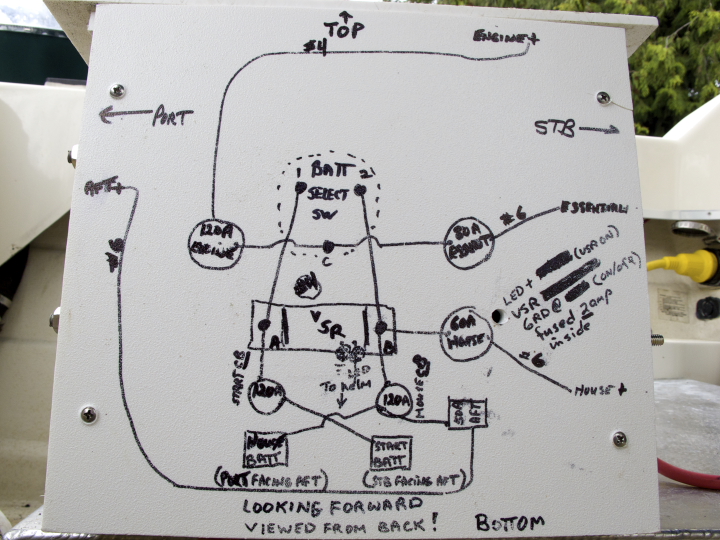 TOP
#4
ENGINE+
PORT
STB
AFT+
#6
1 BATT 2
SELECT
SW
C
120A
ENGINE
80A
ESSNT
#6
ESSENTIAL
LED + (VSR ON)
VSR (ON/OFF)
GRD @
fused 2 amp
inside
VSR
A
B
60A
HOUSE
#6
HOUSE+
START SB
HOUSE SB
TO HELM
120A
120A
50A
AFT
HOUSE
BATT
START
BATT
(PORT FACING AFT)
(STB FACING AFT)
LOOKING FORWARD
VIEWED FROM BACK!
BOTTOM